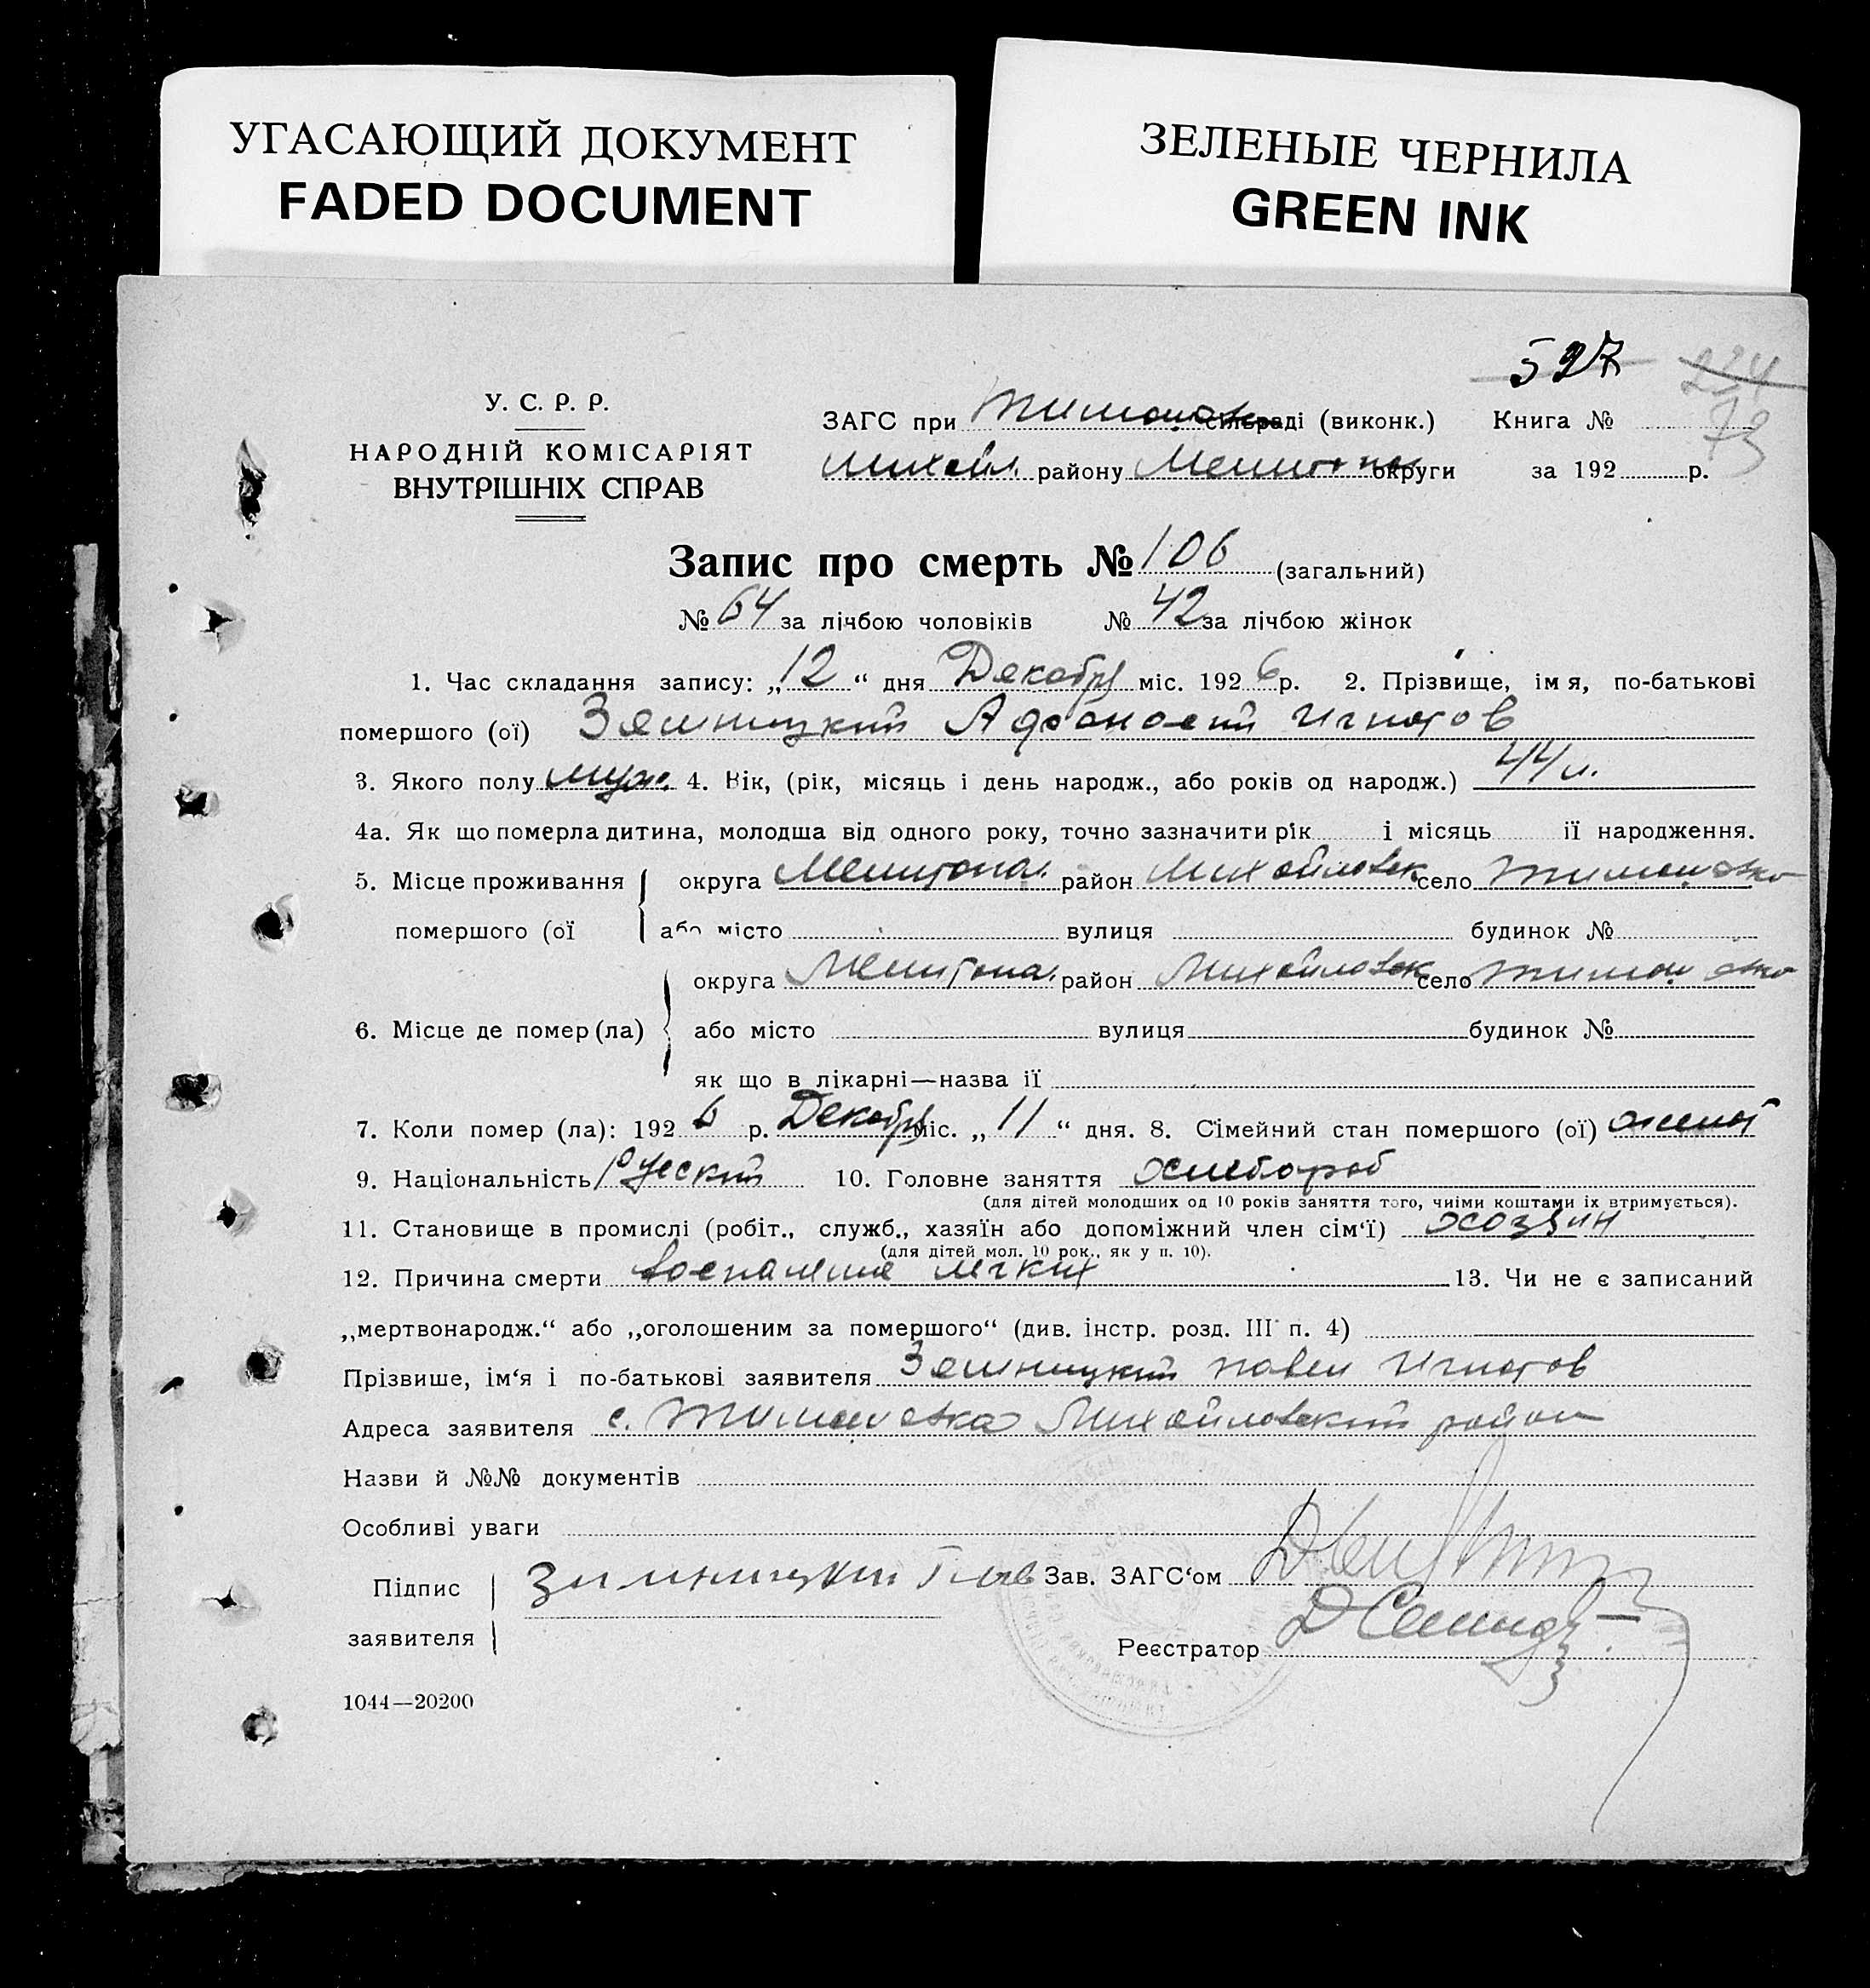 УГАСАЮЩИЙ ДОКУМЕНТ
FADED DOCUMENT
ЗЕЛЕНЫЕ ЧЕРНИЛА
GREEN INK
597 234
У. С. Р. Р.
НАРОДНІЙ КОМІСАРІЯТ
ВНУТРІШНІХ СПРАВ
ЗАГС при Тимошов сільраді (виконк.) Книга № 73
Михайл. району Мелитопол округи за 192 р.
Запис про смерть № 106 (загальний)
№ 64 за лічбою чоловіків № 42 за лічбою жінок
1. Час складання запису: „12“ дня Декабря міс. 1926 р. 2. Прізвище, імя, по-батькові
помершого (ої) Земницкий Афонасий Игнатов
3. Якого полу муж. 4. Вік, (рік, місяць і день народж., або років од народж.) 44 л.
4а. Як що померла дитина, молодша від одного року, точно зазначити рік і місяць її народження.
5. Місце проживання округа Мелитопол. район Михайловск село Тимошовка
помершого (ої або місто вулиця будинок №
округа Мелитопол. район Михайловск село Тимошовка
6. Місце де помер (ла) або місто вулиця будинок №
як що в лікарні—назва її
7. Коли помер (ла): 1926 р. Декабря міс. „11“ дня. 8. Сімейний стан помершого (ої) женат
9. Національність Руский 10. Головне заняття хлебороб
(для дітей молодших од 10 років заняття того, чиїми коштами їх втримується).
11. Становище в промислі (робіт., служб., хазяїн або допоміжний член сім‘ї) хозяин
(для дітей мол. 10 рок., як у п. 10).
12. Причина смерти воспаление легких 13. Чи не є записаний
„мертвонародж.“ або „оголошеним за помершого“ (див. інстр. розд. III п. 4)
Прізвише, ім‘я і по-батькові заявителя Земницкий Павел Игнатов
Адреса заявителя с. Тимошовка Михайловский район
Назви й №№ документів
Особливі уваги
Підпис Зимницкий Зав. ЗАГС‘ом
заявителя
Реєстратор
1044—20200